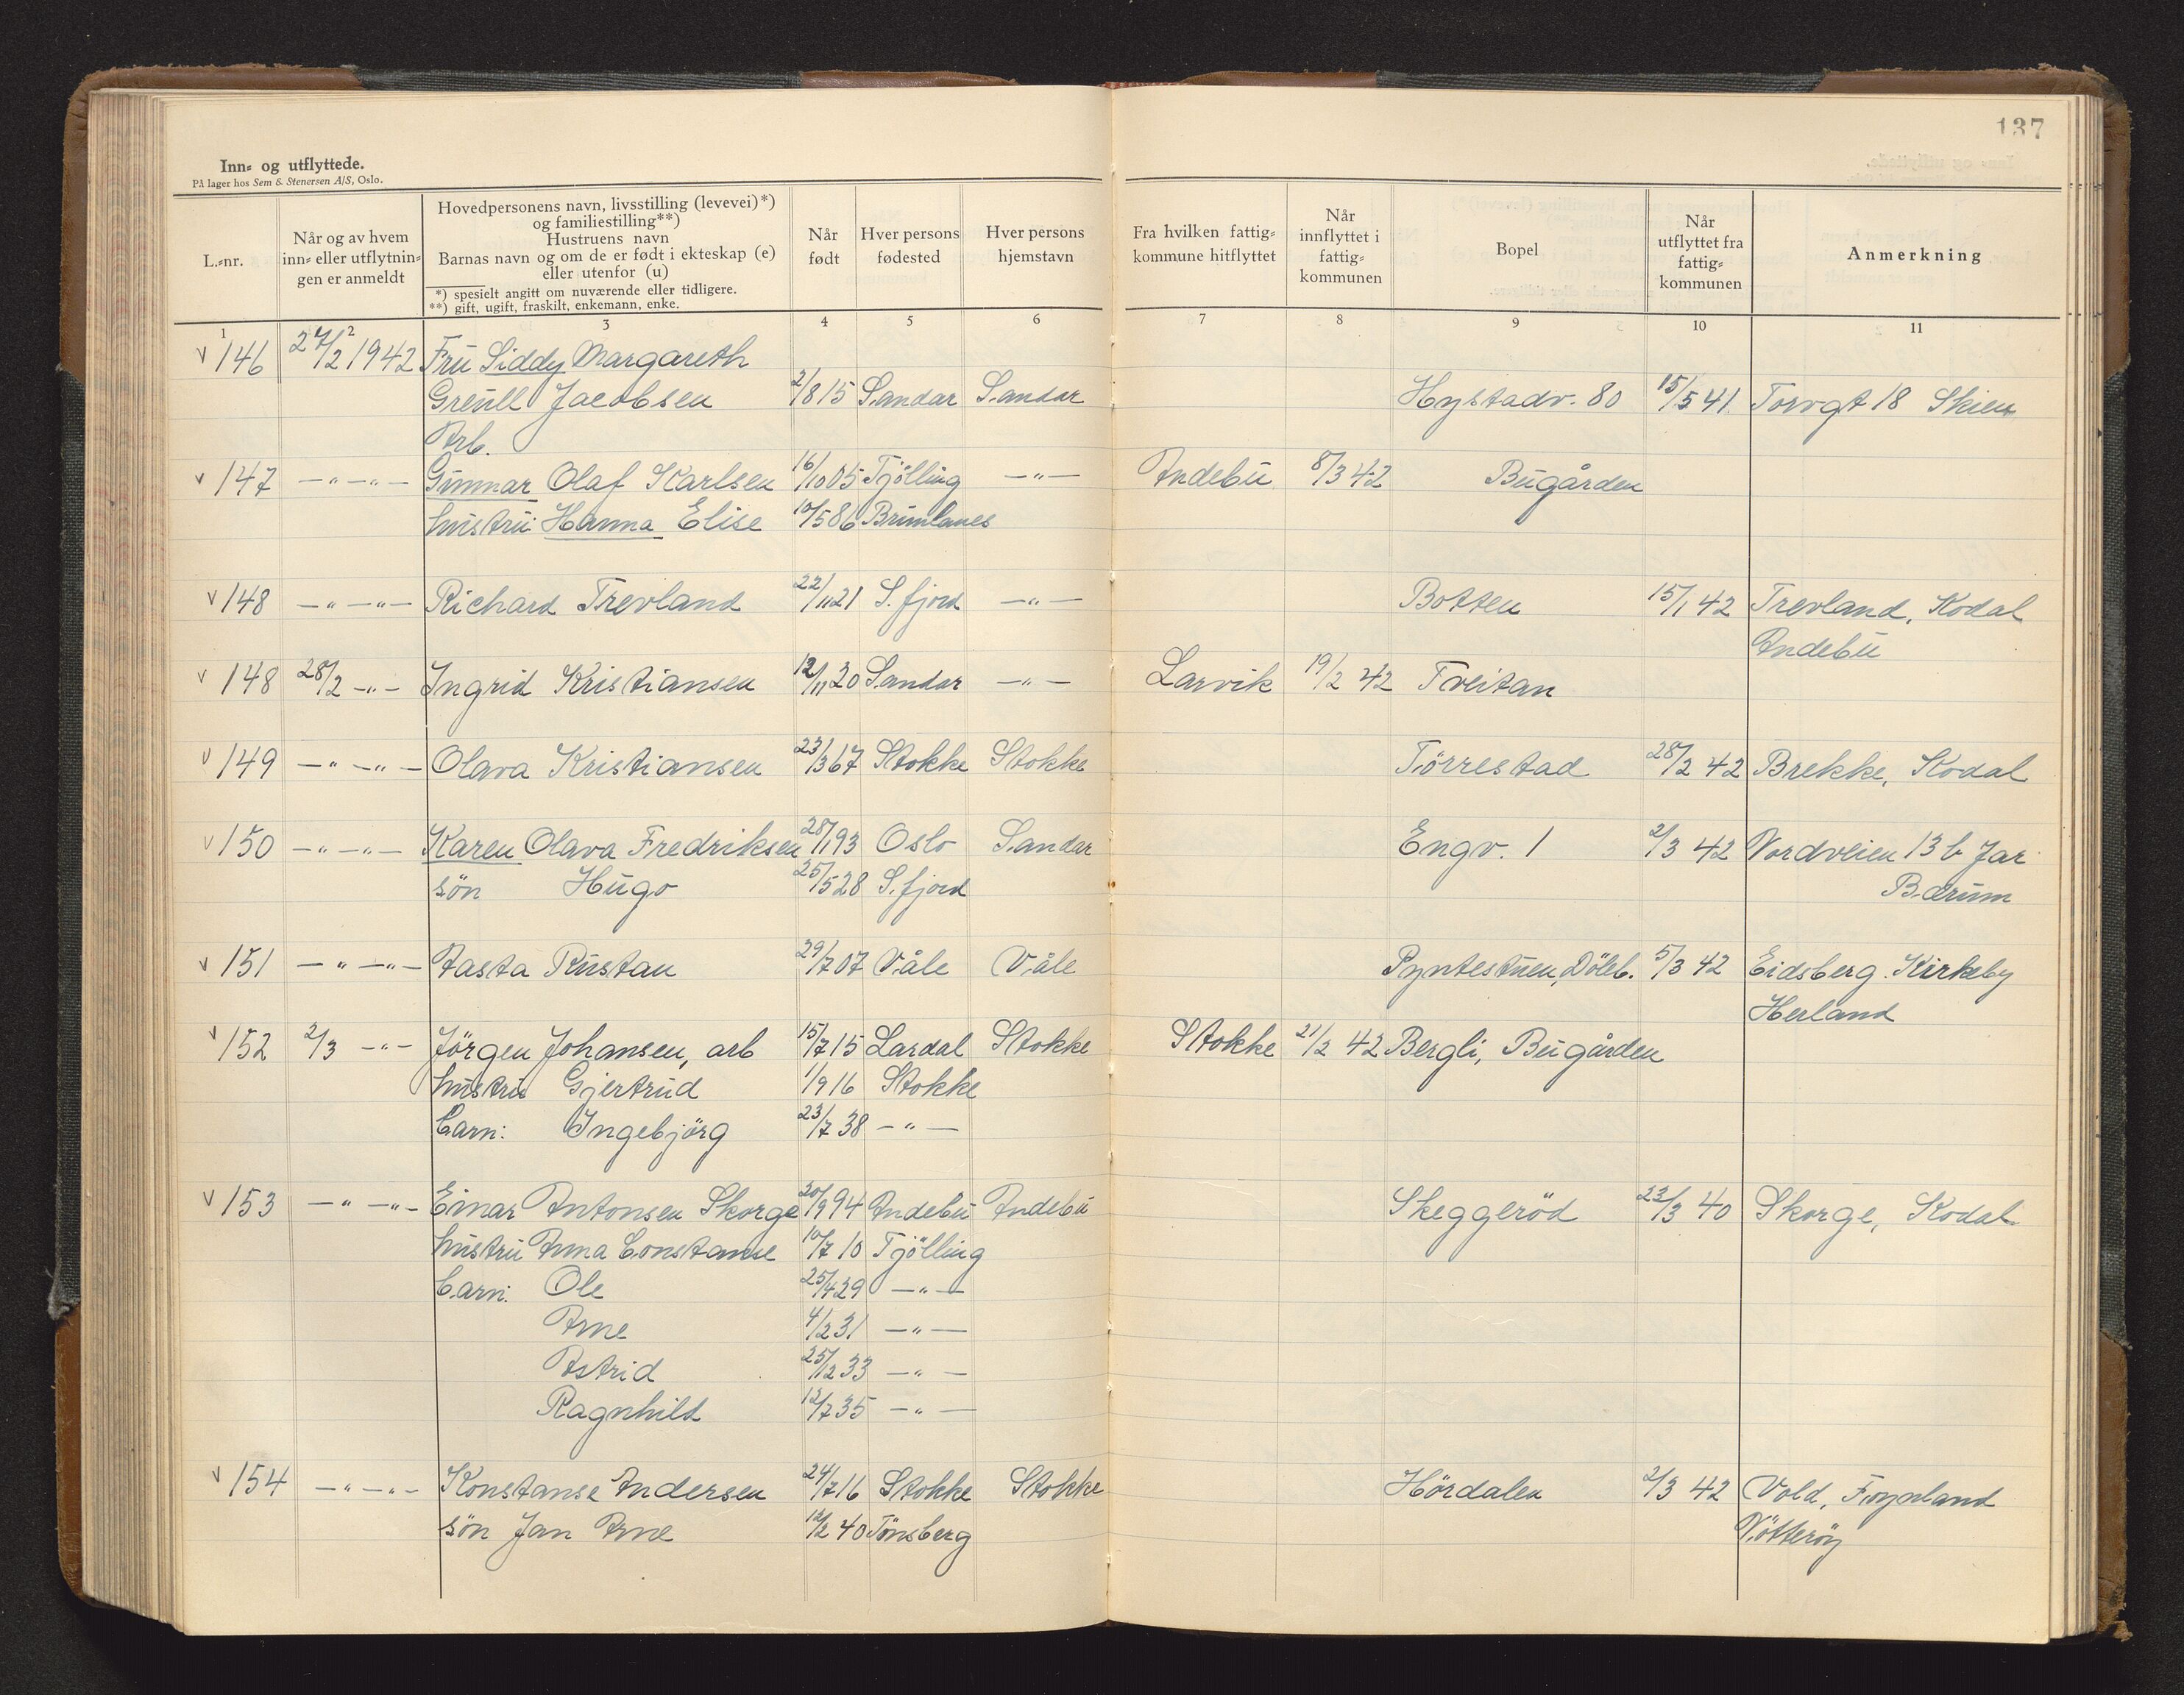 137
Inn- og utflyttede.
På lager hos Sem & Stenersen A/S, Oslo.
L.-nr.
Når og av hvem
inn- eller utflytnin-
gen er anmeldt
Hovedpersonens navn, livsstilling (levevei)*)
og familiestilling**)
Hustruens navn
Barnas navn og om de er født i ekteskap (e)
eller utenfor (u)
*) spesielt angitt om nuværende eller tidligere.
**) gift, ugift, fraskilt, enkemann, enke.
Når
født
Hver persons
fødested
Hver persons
hjemstavn
Fra hvilken fattig-
kommune hitflyttet
Når
innflyttet i
fattig-
kommunen
Bopel
Når
utflyttet fra
fattig-
kommunen
Anmerkning
1 2 3 4 5 6 7 8 9 10 11
v 146 27/2 1942 Fru Siddy Margareth
Greull Jacobsen 2/8 15 Sandar Sandar Hystadv. 80 15/5 41. Torvgt 18 Skien
Arb.
v 147 —"—"— Gunnar Olaf Karlsen 16/10 05 Tjölling —"— Andebu 8/3 42 Bugården
hustru: Hanna Elise 10/5 86 Brunlanes
v 148 —"—"— Richard Trevland 22/11 21 S. fjord —"— Botten 15/1 42 Trevland, Kodal
Andebu
v 148 28/2 —"— Ingrid Kristiansen 12/11 20 Sandar —"— Larvik 19/2 42 Tveitan
v 149 —"—"— Olava Kristiansen 23/3 67 Stokke Stokke Törrestad 28/2 42 Brekke, Kodal
v 150 —"—"— Karen Olava Fredriksen 28/1 93 Oslo Sandar Engv. 1 2/3 42 Nordveien 13 b Jar
sön Hugo 25/5 28 S. fjord Bærum
v 151 —"—"— Aasta Rustan 29/7 07 Våle Våle Pyntestuen, Döleb. 5/3 42 Eidsberg. Kirkeby
Herland
v 152 2/3 —"— Jörgen Johansen, arb 15/7 15 Lardal Stokke Stokke 21/2 42 Bergli, Bugården
hustru Gjertrud 1/9 16 Stokke
barn: Ingebjörg 23/7 38 —"—
v 153 —"—"— Einar Antonsen Skorge 20/9 94 Andebu Andebu Skeggeröd 23/3 40 Skorge, Kodal
hustru Anna Constanse 10/7 10 Tjölling
barn: Ole 25/4 29 —"—
Arne 4/2 31 —"—
Astrid 25/12 33 —"—
Ragnhild 12/7 35 —"—
v 154 —"—"— Konstanse Andersen 24/7 16 Stokke Stokke Hördalen 2/3 42 Vold, Föynland
sön Jan Arne 12/2 40 Tönsberg Nötteröy